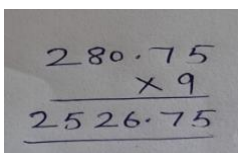 280.75
× 9
2526.75